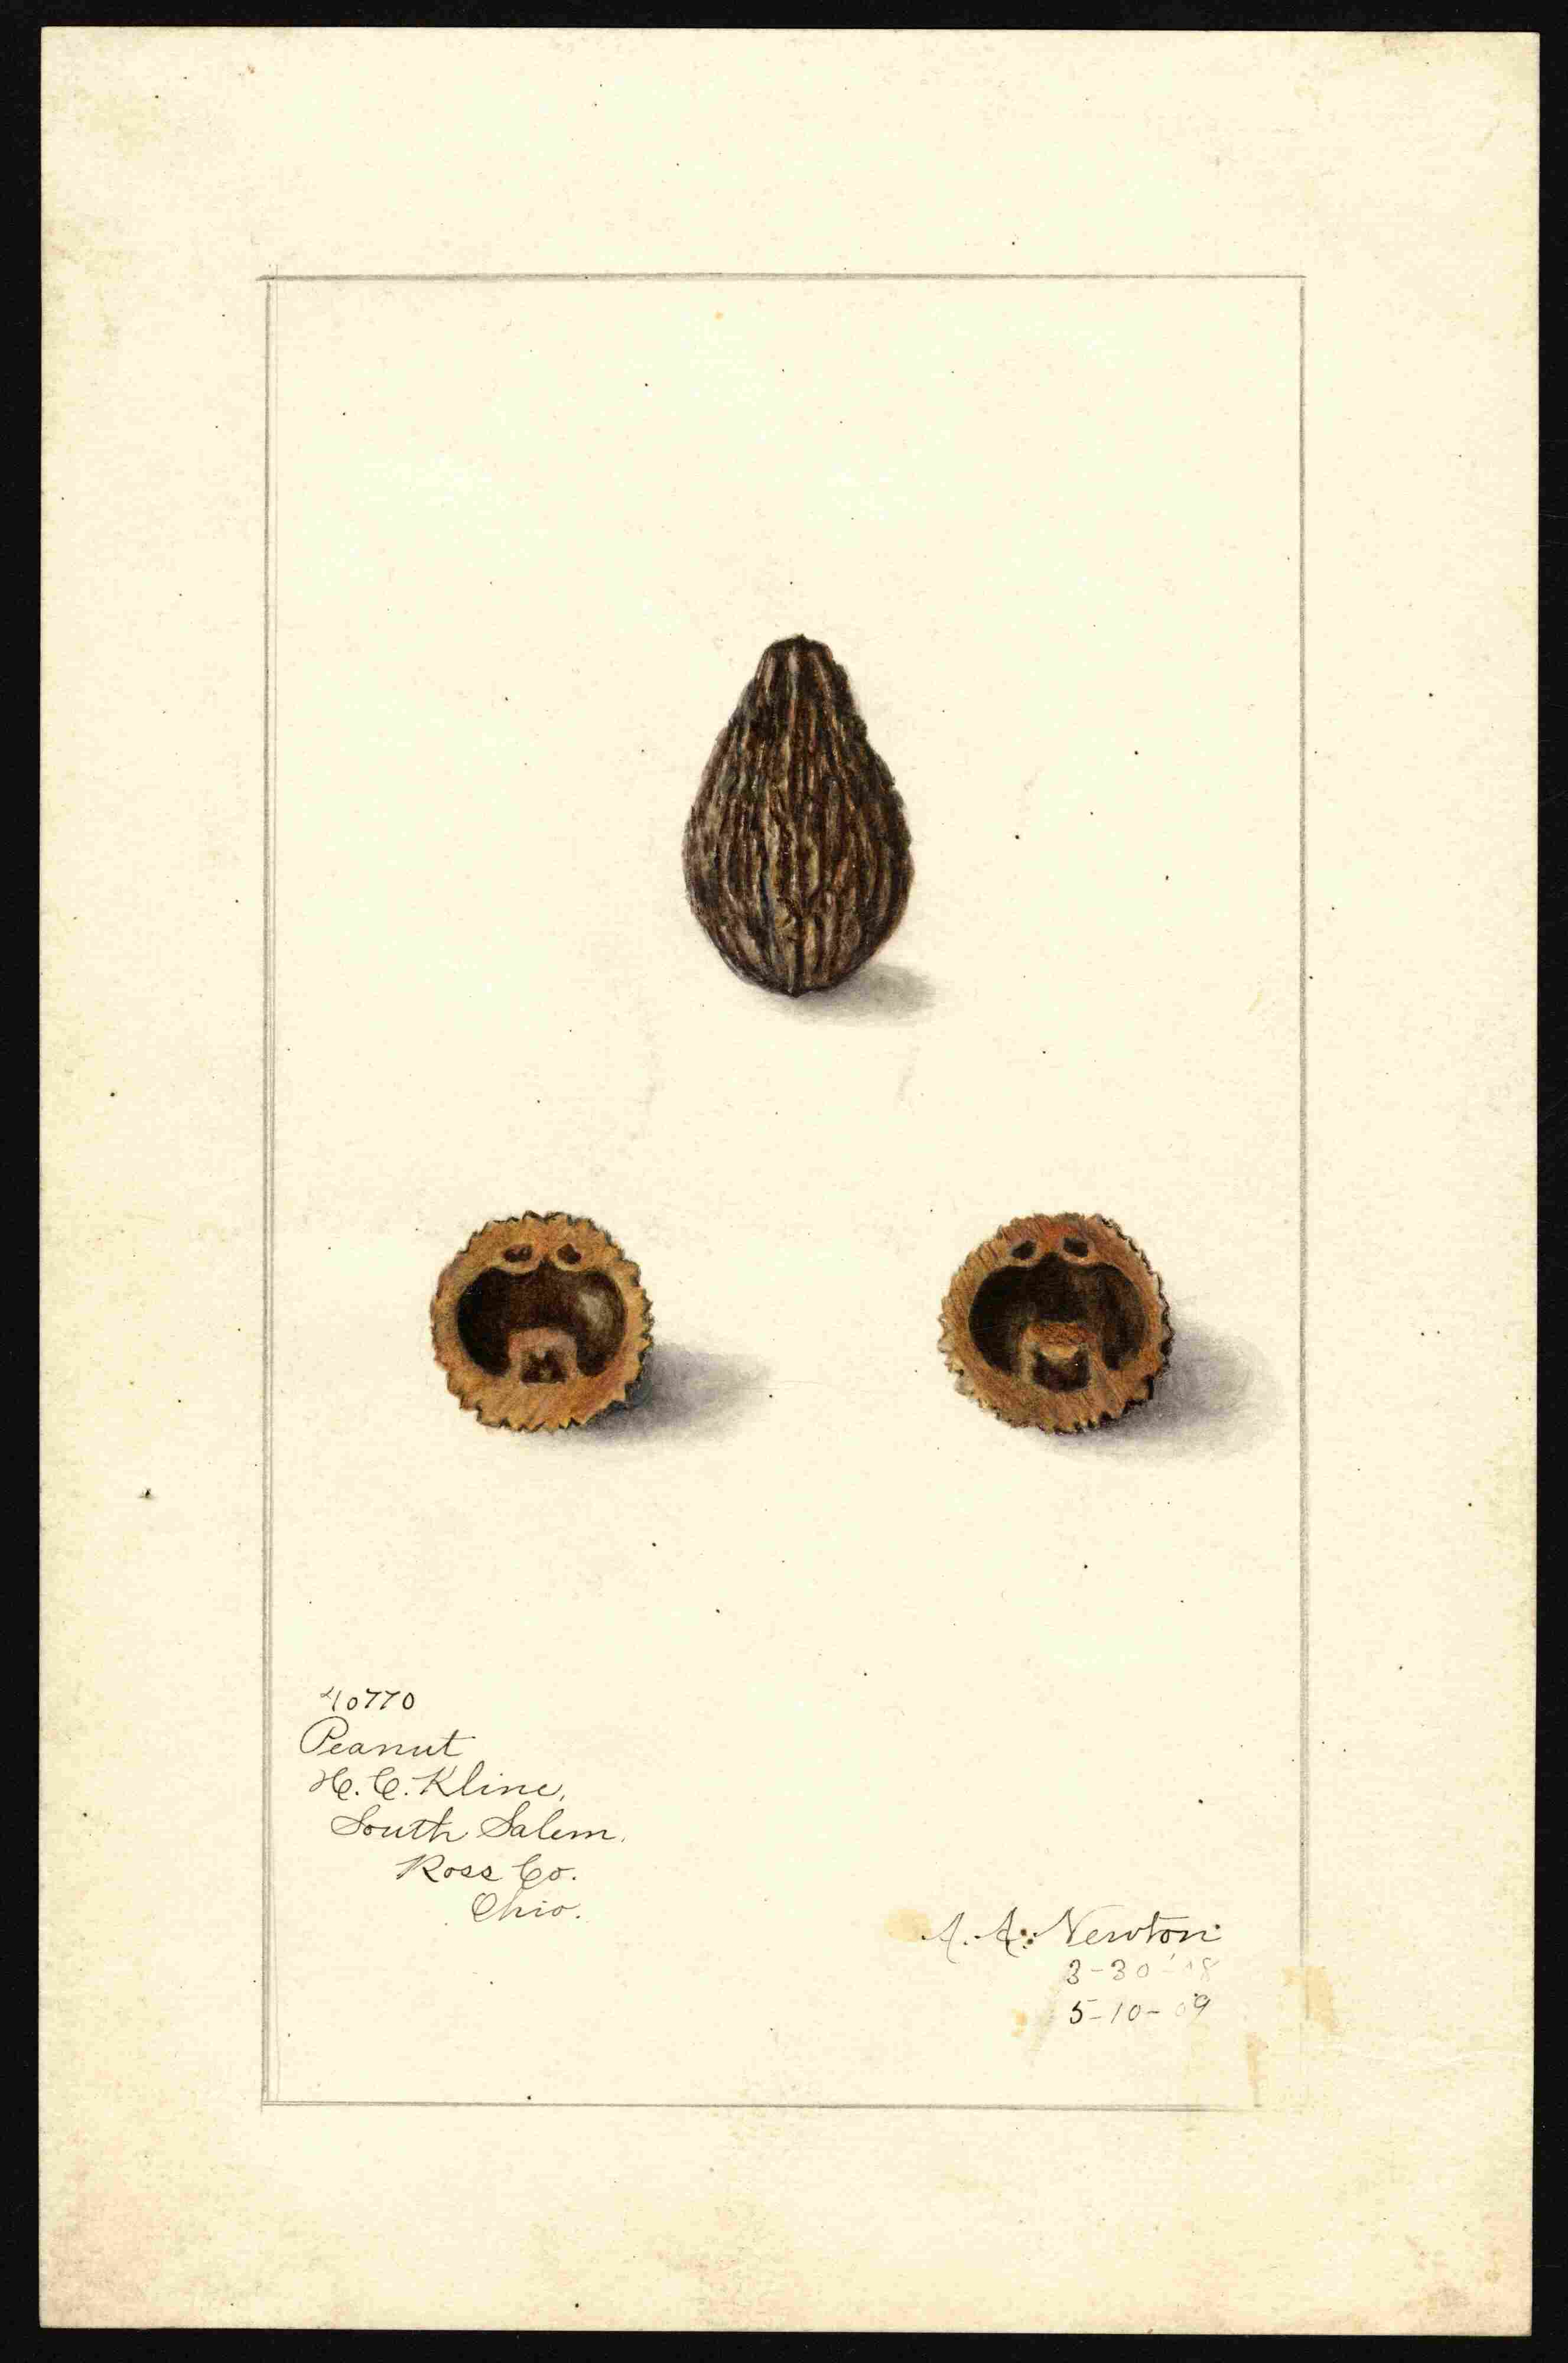 40770
Peanut
H. C. Kline,
South Salem.
Ross Co.
Ohio.
A. A. Newton
3-30-'08
5-10-09